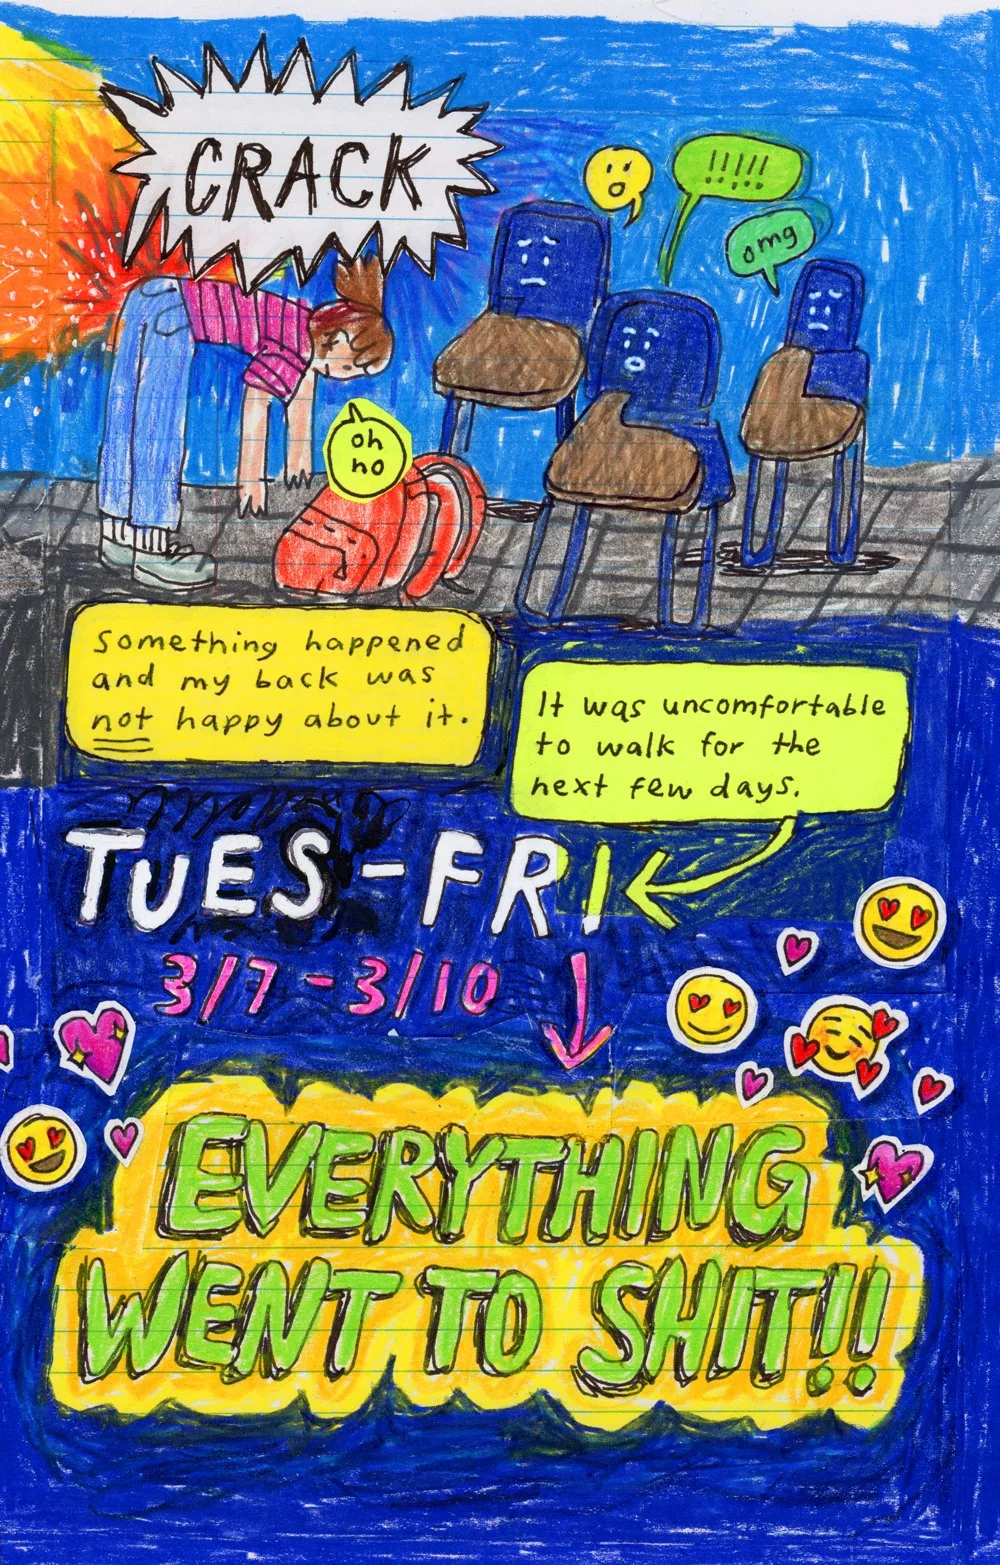 CRACK
!!!!!
omg
oh
no
Something happened
and my back was
not happy about it.
It was uncomfortable
to walk for the
next few days.
TUES-FRI
3/7-3/10
EVERYTHING
WENT TO SHIT!!